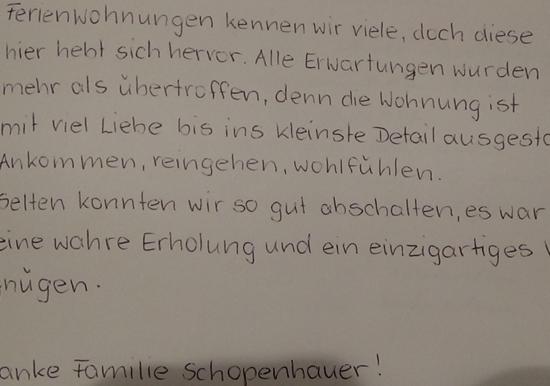 Ferienwohnungen kennen wir viele, doch diese
hier hebt sich hervor. Alle Erwartungen wurden
mehr als übertroffen, denn die Wohnung ist
mit viel Liebe bis ins kleinste Detail ausgesta
Ankommen, reingehen, wohlfühlen.
Selten konnten wir so gut abschalten, es war
eine wahre Erholung und ein einzigartiges
nügen.
anke Familie Schopenhauer!